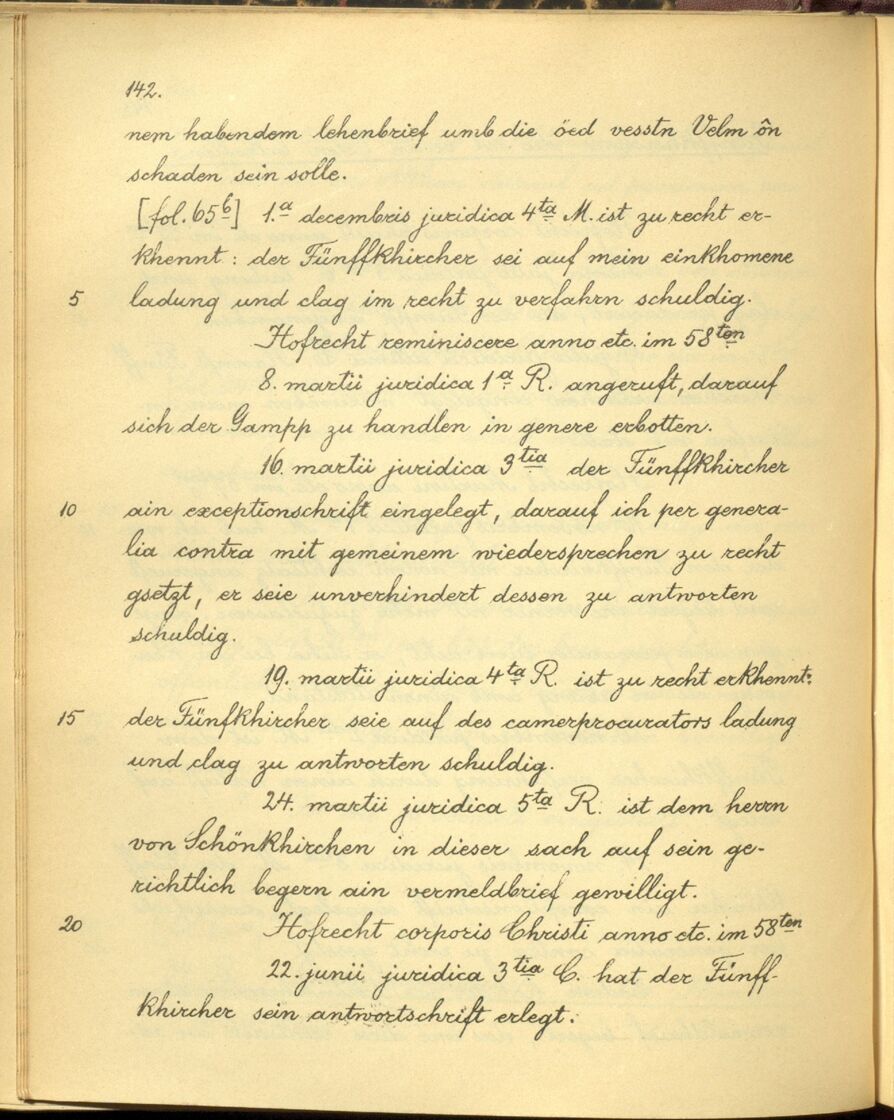 142.
nem habendem lehenbrief umb die öed vesstn Velm ôn
schaden sein solle.
[fol. 65b] 1.a decembris juridica 4ta M. ist zu recht er-
khennt: der Fünffkhircher sei auf mein einkhomene
5 ladung und clag im recht zu verfahrn schuldig.
Hofrecht reminiscere anno etc. im 58ten
8. martii juridica 1a R. angeruft, darauf
sich der Gampp zu handlen in genere erbotten.
16. martii juridica 3tia der Fünffkhircher
10 ain exceptionschrift eingelegt, darauf ich per genera-
lia contra mit gemeinem wiedersprechen zu recht
gsetzt, er seie unverhindert dessen zu antworten
schuldig.
19. martii juridica 4ta R. ist zu recht erkhennt:
15 der Fünfkhircher seie auf des camerprocurators ladung
und clag zu antworten schuldig.
24. martii juridica 5ta R. ist dem herrn
von Schönkhirchen in dieser sach auf sein ge-
richtlich begern ain vermeldbrief gewilligt.
20 Hofrecht corporis Christi anno etc. im 58ten
22. junii juridica 3tia C. hat der Fünff-
khircher sein antwortschrift erlegt.